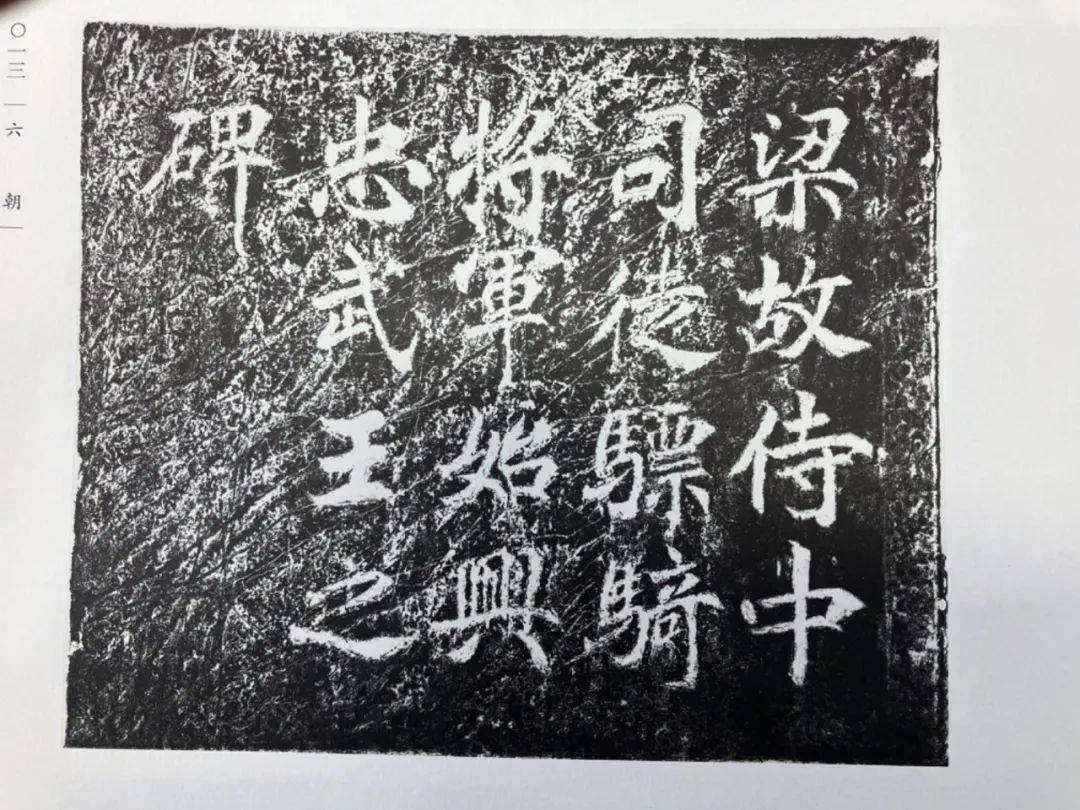 梁故侍中
司徒驃騎
將軍始興
忠武王之
碑
〇一三三 | 六朝 |